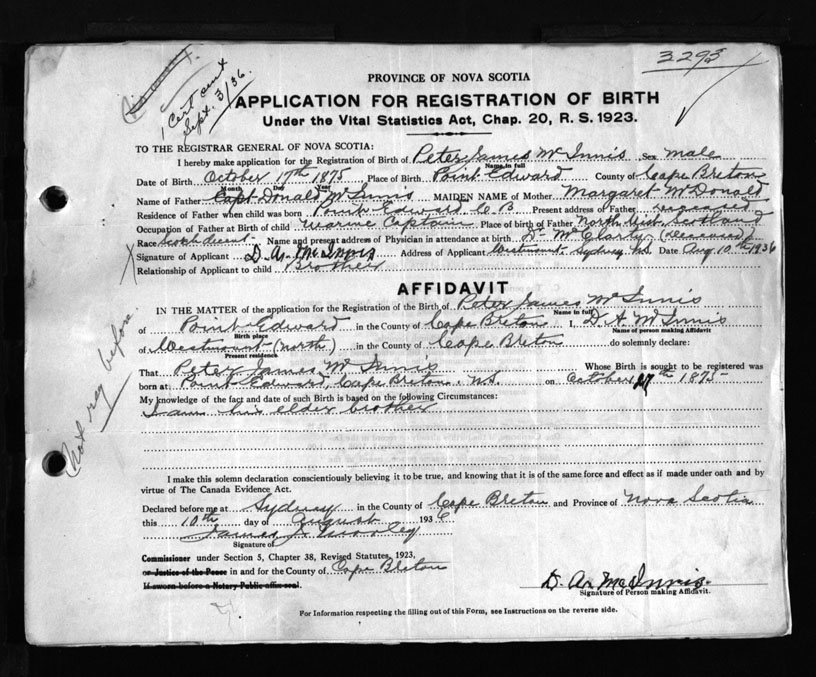 3293
1 Cert sent
Sept. 3/36.
PROVINCE OF NOVA SCOTIA
APPLICATION FOR REGISTRATION OF BIRTH
Under the Vital Statistics Act, Chap. 20, R. S. 1923.
TO THE REGISTRAR GENERAL OF NOVA SCOTIA:
I hereby make application for the Registration of Birth of Peter James McInnis Sex male
Name in full
Date of Birth October 17th 1875 Place of Birth Point Edward County of Cape Breton
Month Day Year
Name of Father Capt Donald McInnis MAIDEN NAME of Mother Margaret McDonald
Residence of Father when child was born Point Edward C B Present address of Father
Occupation of Father at Birth of child Marine Captain Place of birth of Father North Uist, Scotland
Race Scotch decent Name and present address of Physician in attendance at birth Dr McClarty (Deceased)
Signature of Applicant D. A. McInnis Address of Applicant Westmount Sydney N.S. Date Aug 10th 1936
Relationship of Applicant to child Brother
AFFIDAVIT
IN THE MATTER of the application for the Registration of the Birth of Peter James McInnis
Name in full
of Point Edward in the County of Cape Breton I, D. A. McInnis
Birth place Name of person making Affidavit
of Westmount (north) in the County of Cape Breton do solemnly declare:
Present residence
That Peter James McInnis Whose Birth is sought to be registered was
born at Point Edward, Cape Breton, N.S. on October 17th 1875
My knowledge of the fact and date of such Birth is based on the following Circumstances:
I am his elder brother
Not reg before
I make this solemn declaration conscientiously believing it to be true, and knowing that it is of the same force and effect as if made under oath and by
virtue of The Canada Evidence Act.
Declared before me at Sydney in the County of Cape Breton and Province of Nova Scotia
this 10th day of August 1936
James
Signature of
Commissioner under Section 5, Chapter 38, Revised Statutes, 1923,
or Justice of the Peace in and for the County of Cape Breton
If sworn before a Notary Public affix seal.
D. A. McInnis.
Signature of Person making Affidavit.
For Information respecting the filling out of this Form, see Instructions on the reverse side.